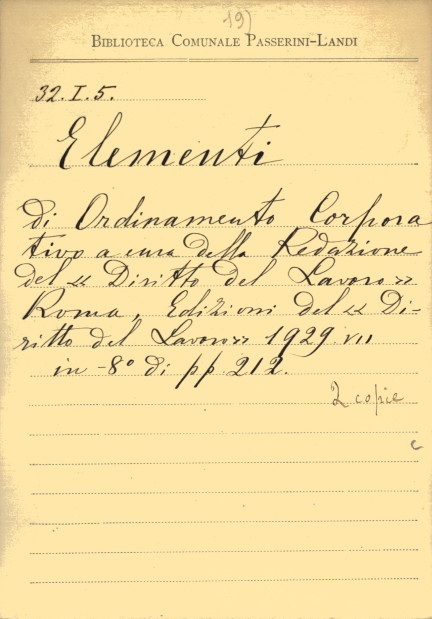 19)
BIBLIOTECA COMUNALE PASSERINI-LANDI
32.I.5.
Elementi
di Ordinamento Corpora
tivo a cura della Redazione
del « Diritto del Lavoro »
Roma, Edizioni del « Di-
ritto del Lavoro » 1929 VII
in-8° di pp 212.
2 copie
c